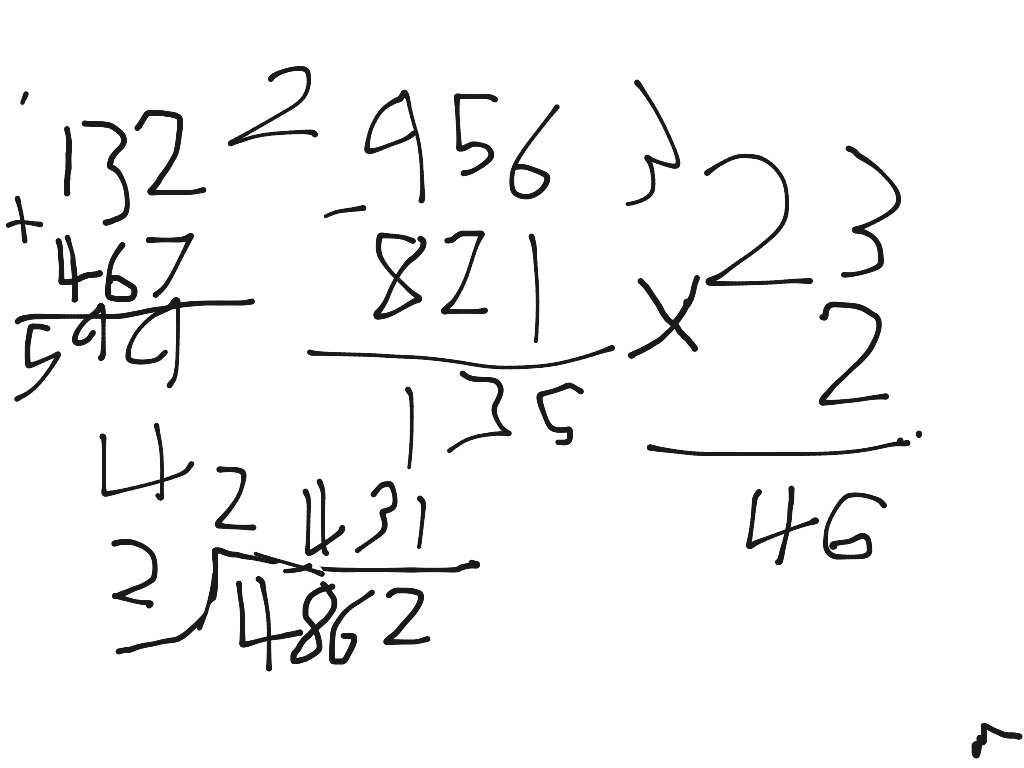 132
+ 467
599
2
956
- 821
135
3
23
x 2
46
4
2431
2 4862